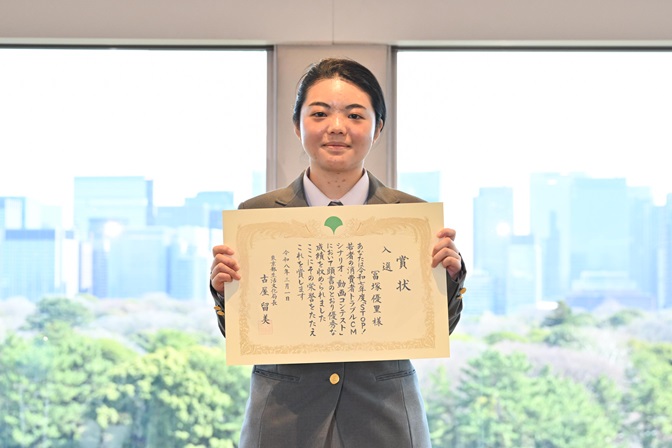 賞状
入選
冨塚優里様
あなたは令和七年度「STOP!
若者の消費者トラブルCM
シナリオ・動画コンテスト」
において頭書のとおり優秀な
成績を収められました
ここにその栄誉をたたえ
これを賞します
令和八年二月一日
東京都生活文化局長
古屋留美